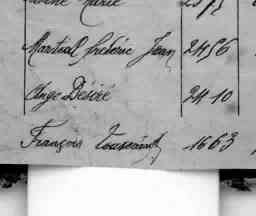 Marie
Martial Frédéric Jean 2456
Ange Désiré 2410
François Toussaint 1663